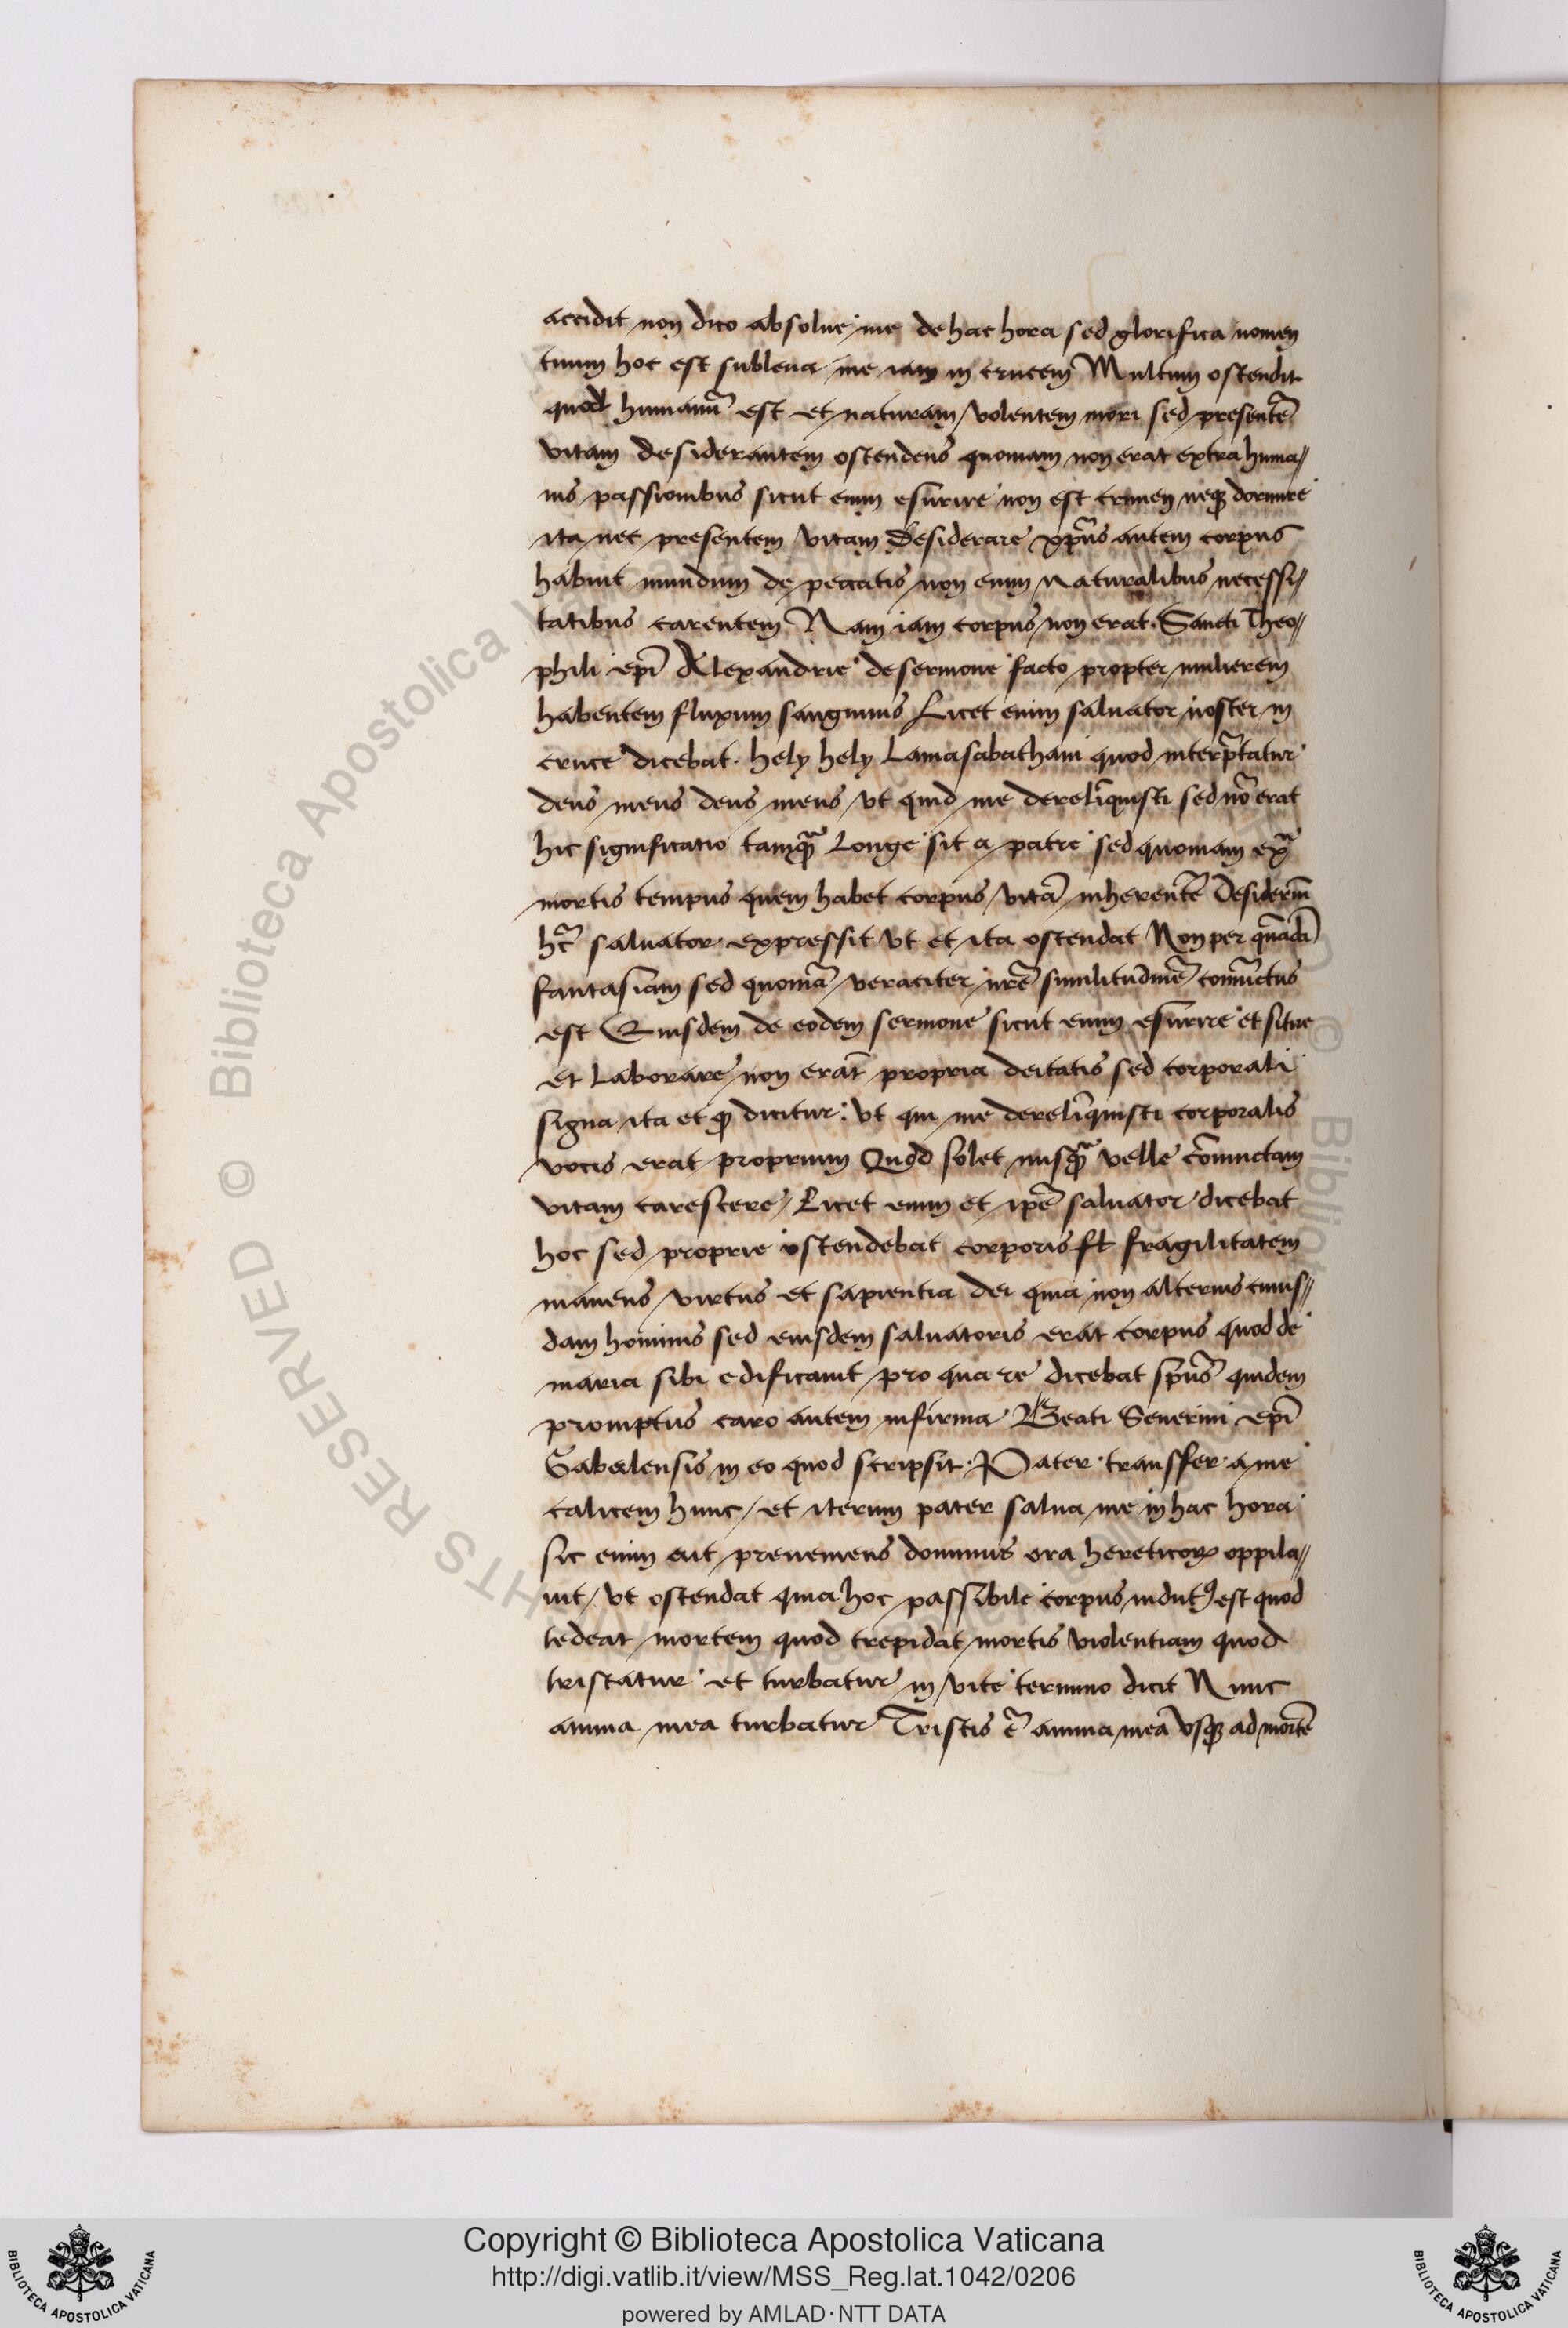 accidit non dico absolue me de hac hora sed glorifica nomen
tuum hoc est subleua me iam in crucem Multum ostendit
quod humanū est et naturam volentem mori sed presentē
vitam desiderantem ostendens quoniam non erat extra huma//
nis passionibus sicut enim esurire non est crimen neqꝫ dormire
ita nec presentem vitam desiderare xp̄us autem corpus
habuit mundum de peccatis non enim naturalibus necessi//
tatibus carentem Nam iam corpus non erat. Sancti Theo//
phili ep̄i Alexandrie de sermone facto propter mulierem
habentem fluxum sanguinis Licet enim saluator noster in
cruce dicebat. hely hely Lamasabathani quod interp̄tatur
deus meus deus meus vt quid me derelīquisti sed nō erat
hic significatio tamqꝫ̄ Longe sit a patre sed quoniam
mortis tempus quem habet corpus vitā inherentē desideriū
saluator expressit vt et ita ostendat Non per quādā
fantasiam sed quoniā veraciter nr̄e similitudinē conuīctus
est Eiusdem de eodem sermone sicut enim esurire et sitire
et Laborare non erāt propria deitatis sed corporali
signa ita et qꝫ dicitur: vt qui me derelīquisti corporalis
vocis erat proprium Quod solet nusqꝫ̄ velle cōiunctam
vitam carescere, Licet enim et ip̄e saluator dicebat
hoc sed proprie ostendebat corporis fragilitatem
manens virtus et sapientia dei quia non alterius cuius//
dam hominis sed eiusdem saluatoris erat corpus quod de
maria sibi edificauit pro qua re dicebat sp̄us quidem
promptus caro autem infirma. Beati Seuerini ep̄i
Gabalensis in eo quod scripsit. Pater transfer a me
calicem hunc, et iterum pater salua me in hac hora
sic enim eut preueniens dominus ora hereticoꝝ oppila//
uit, vt ostendat quia hoc passibile corpus indutꝰ est quod
tedeat mortem quod trepidat mortis violentiam quod
tristatur et turbatur in vite termino dicit Nunc
anima mea turbatur Tristis ē anima mea vsqꝫ ad mortē
Copyright © Biblioteca Apostolica Vaticana
http://digi.vatlib.it/view/MSS_Reg.lat.1042/0206
powered by AMLAD·NTT DATA
BIBLIOTECA APOSTOLICA VATICANA
BIBLIOTECA APOSTOLICA VATICANA